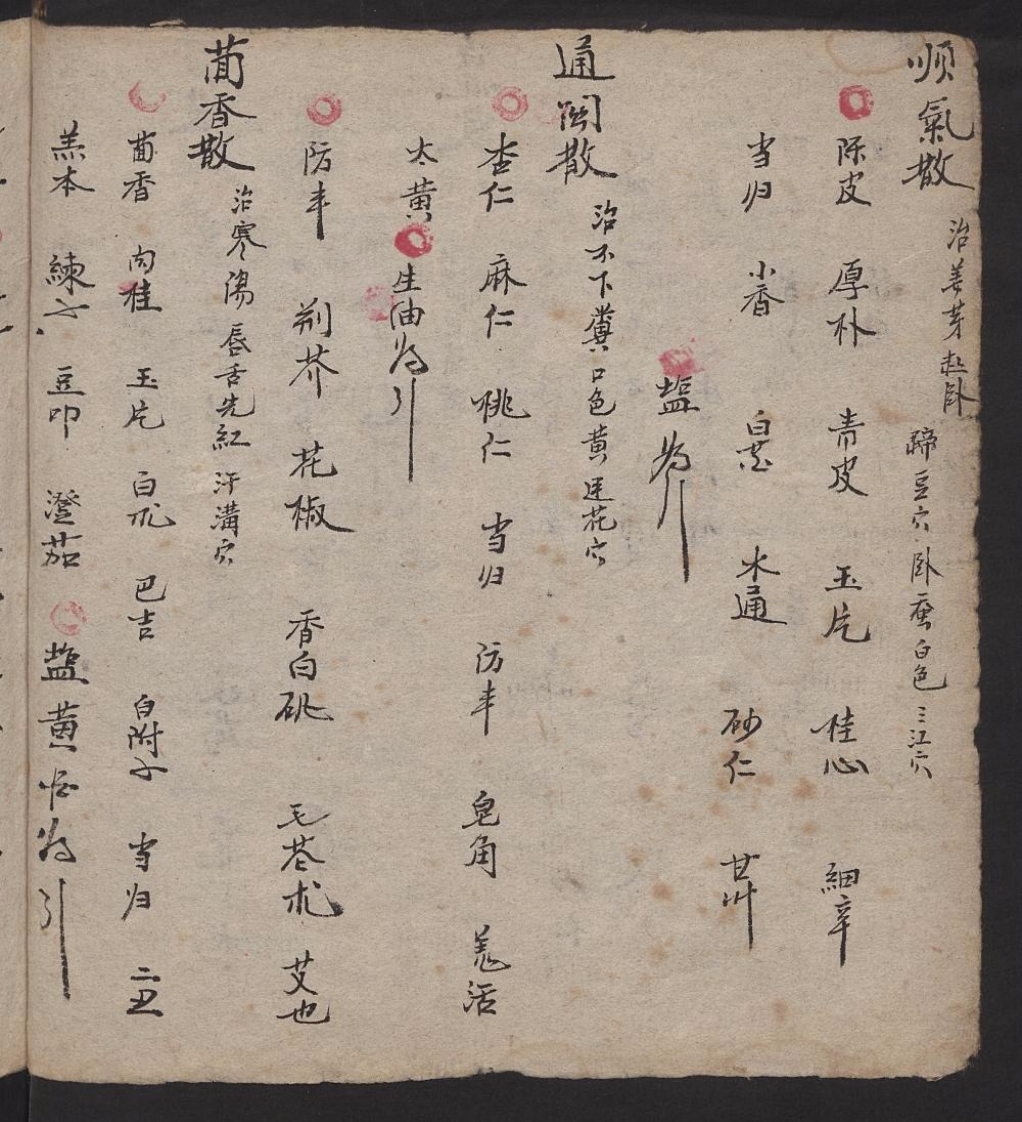 顺氣散 治姜芽起卧 蹄豆穴 卧蚕白色 三江穴
陈皮 厚朴 青皮 玉片 桂心 細辛
当归 小香 白芷 木通 砂仁 甘艸
塩为引
通関散 治不下糞 口色黄 莲花穴
杏仁 麻仁 桃仁 当归 防丰 皂角 羌活
大黄 生油为引
防丰 荆芥 花椒 香白芷 毛苍朮 艾也
茴香散 治寒傷 唇舌先紅 汗溝穴
茴香 肉桂 玉片 白朮 巴吉 白附子 当归 二丑
羔本 練子 豆叩 澄茄 塩黄酒为引